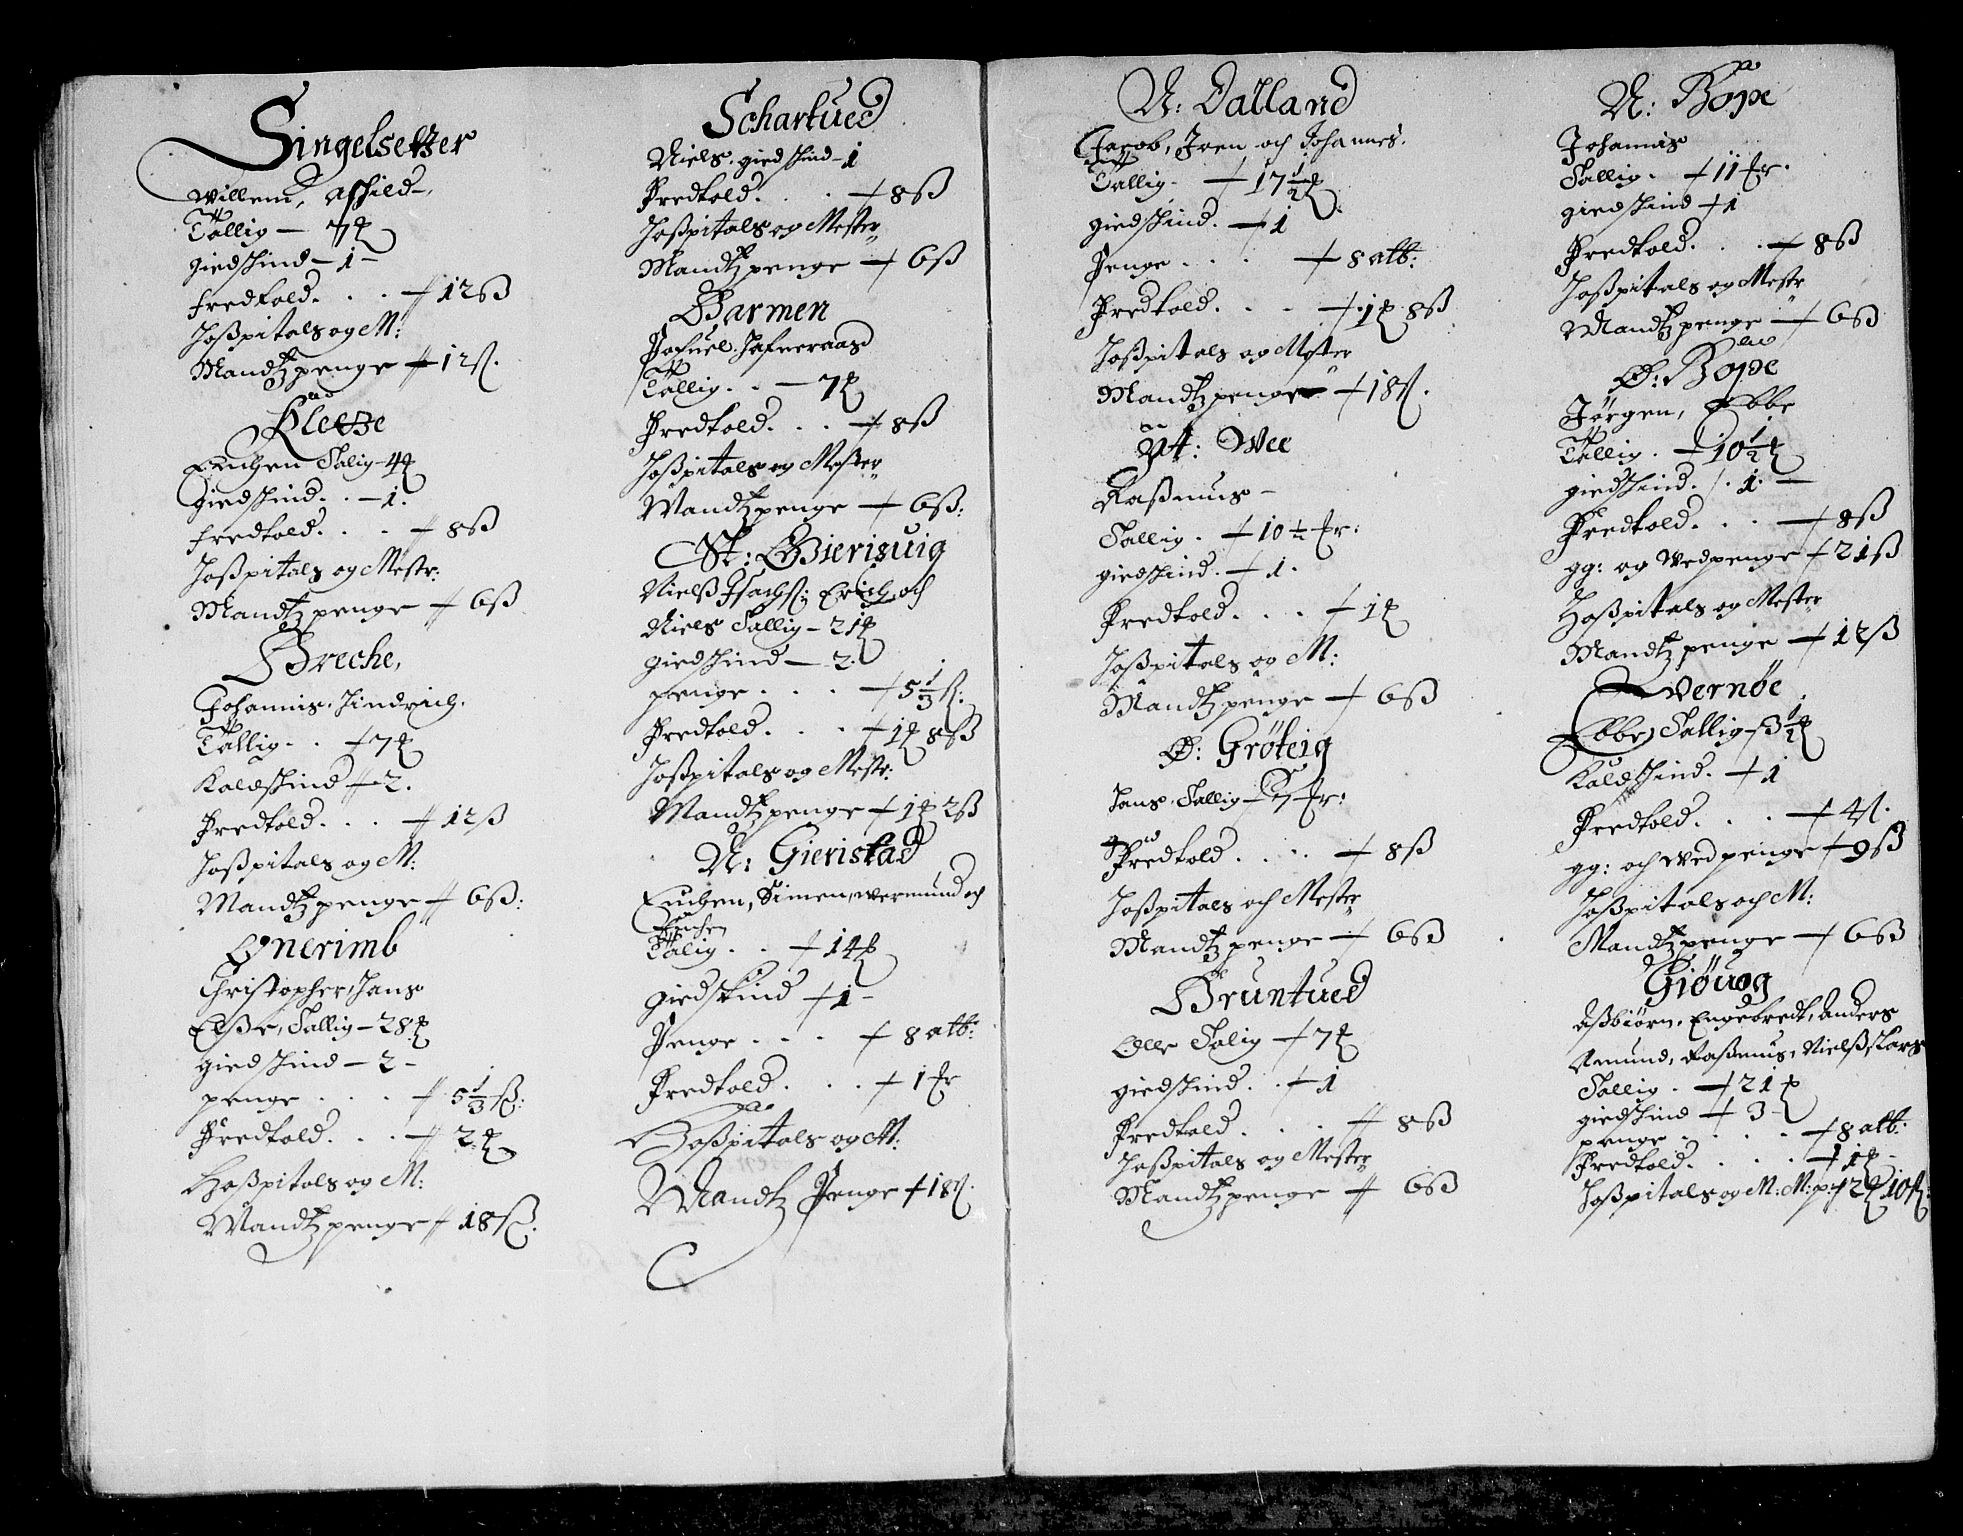 Singelsetzer
Willem, Aschild
Tallig — 7
giedskind — 1 —
fredtold. . . 12ß
Hoßpitals og M:
Mandtzpenge 12ß.
Kletze
Euchen Talig 4
giedskind. . — 1.
fredtold. . . 8ß
Hoßpitals og Mestr:
Mandtzpenge 6ß
Breche,
Johannis, Hindrich.
Tallig. . 7
Kaldskind 2.
Fredtold. . . 12ß
Hoßpitals og M:
Mandtzpenge 6ß:
Onerimb
Christopher, Hans
Elße, Tallig — 28
giedskind — 2 —
penge . . . 5 1/3 ß:
Fredtold. . . 2
Hoßpitals og M:
Mandtzpenge 18ß.
Schartued
Niels. giedskind — 1
Fredtold. . . 8ß
Hoßpitals og Mester
Mandtzpenge 6ß
Barmen
Pofuel. Hafneraas
Tallig. . — 7
Fredtold. . . 8ß
Hoßpitals og Mester
Mandtzpenge 6ß:
St: Gierisuig
Nielß Isachß: Erich, och
Niels Tallig — 21
giedskind — 2.
penge . . . 5 1/3 ß:
Fredtold. . . 1 8ß
Hoßpitals og Mestr:
Mandtzpenge 1 2ß
N: Gieristad
Euchen, Simen, vermund och
Euchen
Talig. . 14
giedskind 1 —
Penge . . . 8 alb:
Fredtold. . . 1 fr
Hoßpitals og M:
Mandtz Penge 18ß.
N: Dalland
Jacob, Joen och Johannes.
Tallig. 17 1/2
giedskind. 1
Penge . . . 8 alb:
Fredtold. . . 1 8ß
Hoßpitals og Mester
Mandtzpenge 18ß.
Yt: Wee
Raßmus —
Tallig. 10 1/2 fr:
giedskind. 1.
Fredtold. . . 1
Hoßpitals og M:
Mandtzpenge 6ß
Ø: Grøteig
Hans, Tallig 7 fr:
Fredtold. . . 8ß
Hoßpitals och Mester
Mandtzpenge 6ß
Bruntued
Olle Talig 7
giedskind. . 1
Fredtold. . . 8ß
Hoßpitals og Mester
Mandtzpenge 6ß
N: Bøye
Johannis
Tallig. 11 fr.
giedskind 1
Fredtold. . . 8ß
Hoßpitals og Mestr
Mandtzpenge 6ß
Ø: Bøye
Jørgen, Ebbe
Tallig. 10 1/2
giedskind. . 1. —
Fredtold. . . 8ß
gg: og Vedpenge 21ß
Hoßpitals og Mester
Mandtzpenge 12ß
Qvernøe
Ebbe, Tallig 3 1/2
Kaldskind. 1
Fredtold. . . 4ß.
gg: och Vedpenge 9ß
Hoßpitals och M:
Mandtzpenge 6ß
Giøuog
Aßbiørn, Engebredt, Anders
Amund, Raßmus, Nielß, Lars
Tallig. 21
giedskind 3
penge . . . 8 alb:
Fredtold. . . 1 —
Hoßpitals og M: M: p: 2 10ß.